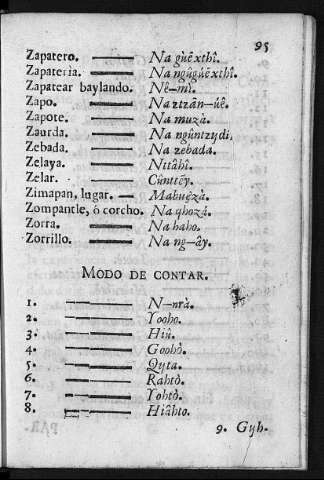 95
Zapatero. —— Na gùêxthî.
Zapaterìa. —— Na ngûgùêxthî.
Zapatear baylando. Nê-mì.
Zapo. —— Na ztzān-ùê.
Zapote. —— Na muzà.
Zaurda. —— Na ngûntzydi.
Zebada. —— Na zebada.
Zelaya. —— Nttâhî.
Zelar. —— Cûnttēy.
Zimapan, lugar. — Mabuęzà.
Zompantle, ò corcho. Na qhozà.
Zorra. —— Na haho.
Zorrillo. —— Na ng-ây.
MODO DE CONTAR.
1. —— N-nrà.
2. —— Yooho.
3. —— Hiû.
4. —— Goohò.
5. —— Qyta.
6. —— Rahtò.
7. —— Yohtò.
8. —— Hiâhto.
9. Gyh.